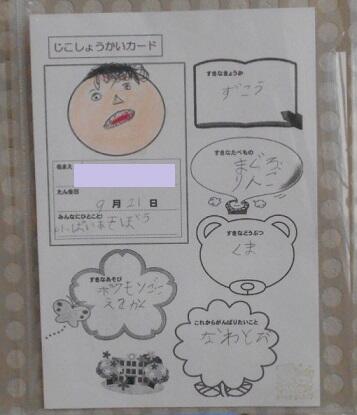 じこしょうかいカード
なまえ
たん生日
9月21日
みんなにひとこと!
いっぱいあそぼう
すきなきょうか
ずこう
すきなたべもの
まぐろ
りんご
すきなどうぶつ
くま
すきなあそび
ポケモンごっこ
えをかく
これからがんばりたいこと
なわとび